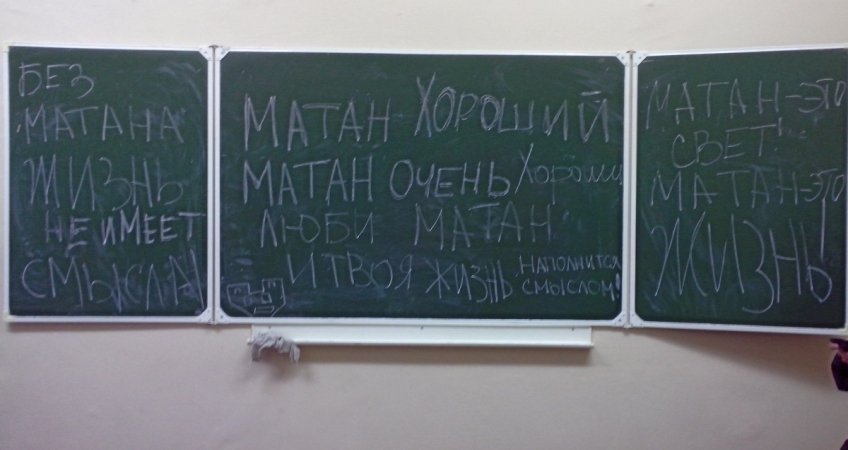 БЕЗ
МАТАНА
ЖИЗНЬ
НЕ ИМЕЕТ
СМЫСЛА!
МАТАН ХОРОШИЙ
МАТАН ОЧЕНЬ Хороший
ЛЮБИ МАТАН
И ТВОЯ ЖИЗНЬ НАПОЛНИТСЯ
СМЫСЛОМ!
МАТАН-ЭТО
СВЕТ!
МАТАН-ЭТО
ЖИЗНЬ!